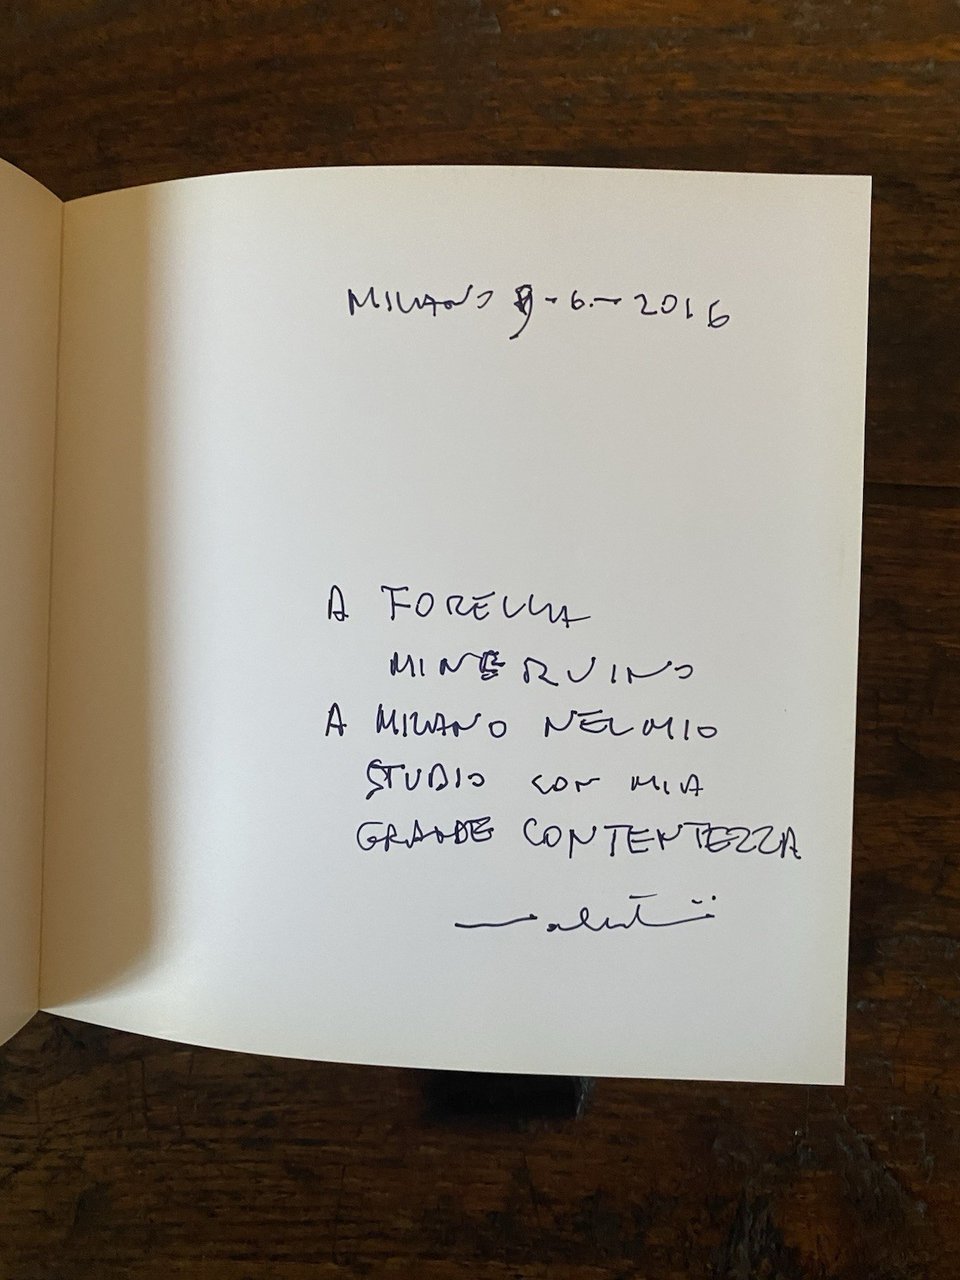 MILANO 9-6.-2016
A FORELLA
MINERVINO
A MILANO NEL MIO
STUDIO CON MIA
GRANDE CONTENTEZZA